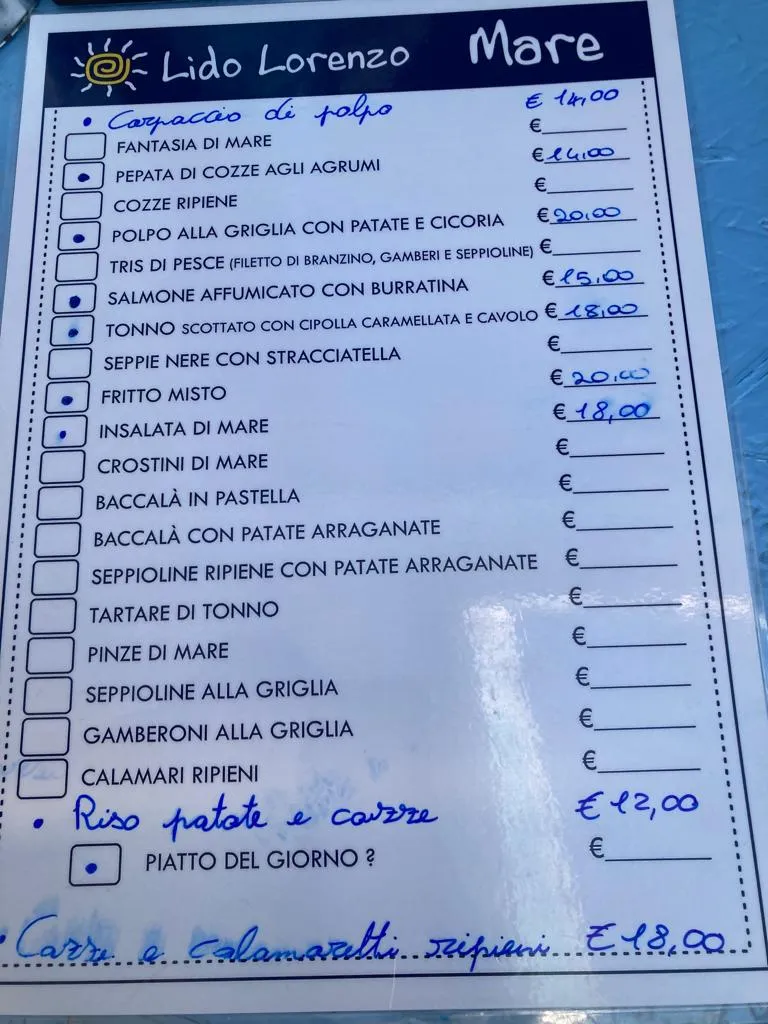 Lido Lorenzo Mare
• Carpaccio di polpo € 14,00
FANTASIA DI MARE €
• PEPATA DI COZZE AGLI AGRUMI € 14,00
COZZE RIPIENE €
• POLPO ALLA GRIGLIA CON PATATE E CICORIA € 20,00
TRIS DI PESCE (FILETTO DI BRANZINO, GAMBERI E SEPPIOLINE) €
• SALMONE AFFUMICATO CON BURRATINA € 15,00
• TONNO SCOTTATO CON CIPOLLA CARAMELLATA E CAVOLO € 18,00
SEPPIE NERE CON STRACCIATELLA €
• FRITTO MISTO € 20,00
• INSALATA DI MARE € 18,00
CROSTINI DI MARE €
BACCALÀ IN PASTELLA €
BACCALÀ CON PATATE ARRAGANATE €
SEPPIOLINE RIPIENE CON PATATE ARRAGANATE €
TARTARE DI TONNO €
PINZE DI MARE €
SEPPIOLINE ALLA GRIGLIA €
GAMBERONI ALLA GRIGLIA €
CALAMARI RIPIENI €
• Riso patate e cozze € 12,00
• PIATTO DEL GIORNO ? €
• Cozze e calamaretti ripieni € 18,00